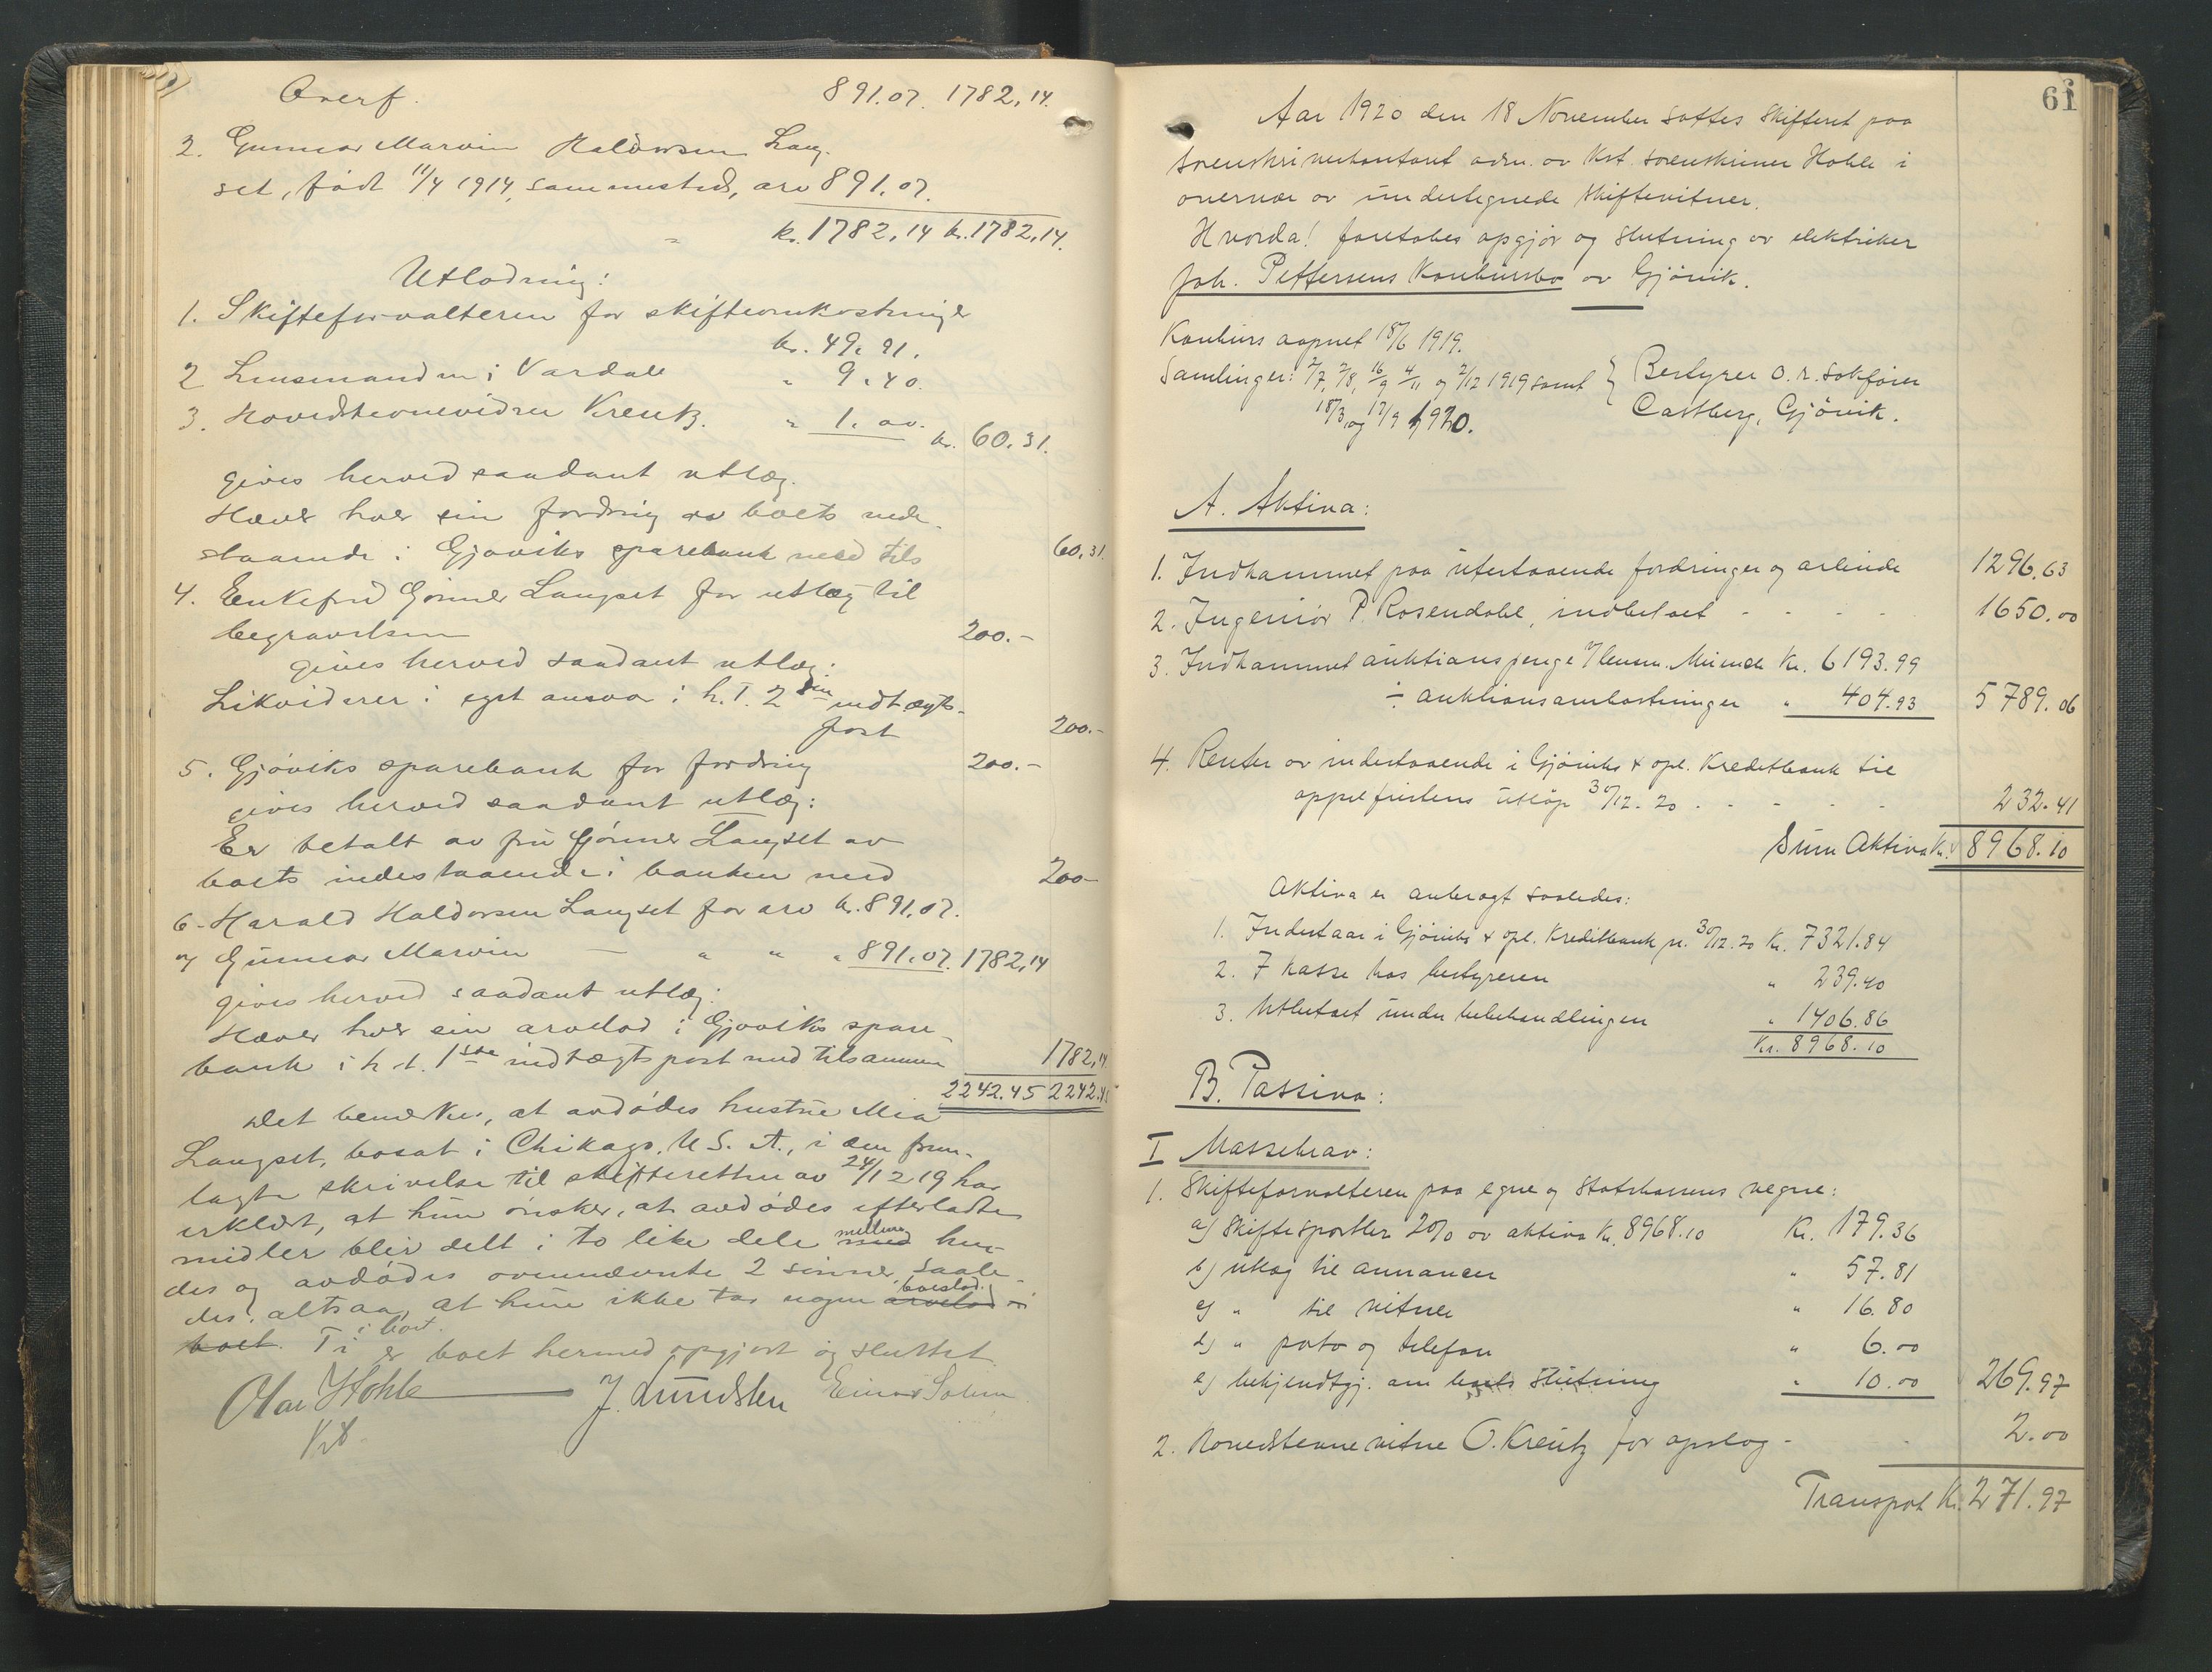 Overf. 891.07. 1782,14.
2. Gunnar Marvin Haldorsen Lang-
set, født 11/4 1914, sammesteds, arv 891.07.
kr. 1782,14 kr. 1782,14.
Utlodning:
1. Skifteforvalteren for skifteomkostninger
kr. 49.91.
2 Lensmanden i Vardal " 9.40.
3. Hovedstevnevidnet Kreutz. " 1.00. kr. 60.31.
gives herved saadant utlæg.
Hæver hver sin fordring av boets inde-
staaende i Gjøviks sparebank med tils 60.31.
4. Enkefru Gønner Langset for utlæg til
begravelsen 200.-
gives herved saadant utlæg:
Likviderer i eget ansvar i h.t. 2den indtægts-
post 200.-
5. Gjøviks sparebank for fordring 200.-
gives herved saadant utlæg:
Er betalt av fru Gønner Langset av
boets indestaaende i banken med 200-
6- Harald Haldorsen Langset for arv kr. 891.07.
og Gunnar Marvin — " " " 891.07. 1782,14
gives herved saadant utlæg:
Hæver hver sin arvelod i Gjøviks spare-
bank i h.t. 1ste indtægtspost med tilsammen 1782,14
2242.45 2242.45
Det bemerkes, at avdødes hustru Mia
Langset, bosat i Chikago, U.S.A., i den frem-
lagte skrivelse til skifteretten av 24/12 19 har
erklært, at hun ønsker, at avdødes efterladte
midler blir delt i to like dele mellem hen-
des og avdødes ovennævnte 2 sønner, saale-
des, altsaa, at hun ikke tar nogen arvelod boeslod i
boet. i boet. Ti er boet hermed opgjort og sluttet.
Olav Hohle J. Lundsten Einar Solem
kst.
61
Aar 1920 den 18 November sattes skifteret paa
sorenskriverkontoret adm. av kst. sorenskriver Hohle i
overvær av undertegnede skiftevitner.
Hvorda! foretokes opgjør og slutning av elektriker
Joh. Pettersens konkursbo av Gjøvik.
Konkurs aapnet 18/6 1919.
Samlinger: 2/7, 2/8, 16/9 4/11 og 2/12 1919 samt } Bestyrer o.r. sakfører
18/3 og 17/9 1920. Castberg, Gjøvik.
A. Aktiva:
1. Indkommet paa utestaaende fordringer og arbeide 1296.63
2. Ingeniør P. Rosendahl, indbetalt - - - - 1650.00
3. Indkommet auktionspenge v/ lensm. Miemda kr. 6193.99
÷ auktionsomkostninger " 404.93 5789.06
4. Renter av indestaaende i Gjøviks & opl. Kreditbank til
appelfristens utløp 30/12. 20 - - - - 232.41
Sum Aktiva kr. 8968.10
Aktiva er anbragt saaledes:
1. Indestaar i Gjøviks & opl. Kreditbank pr. 30/12. 20 kr. 7321.84
2. I kasse hos bestyreren " 239.40
3. Utbetalt under bobehandlingen " 1406.86
kr. 8968.10
B. Passiva:
I Massekrav:
1. Skifteforvalteren paa egne og Statskassens vegne:
a) Skiftesportler 2% av aktiva kr. 8968.10 kr. 179.36
b) utlæg til annoncer " 57.81
c) " til vitner " 16.80
d) " porto og telefon " 6.00
e) bekjendtgj. om boets slutning " 10.00 269.97
2. Hovedstevnevitne O. Kreutz for opslag - - 2.00
Transport kr. 271.97